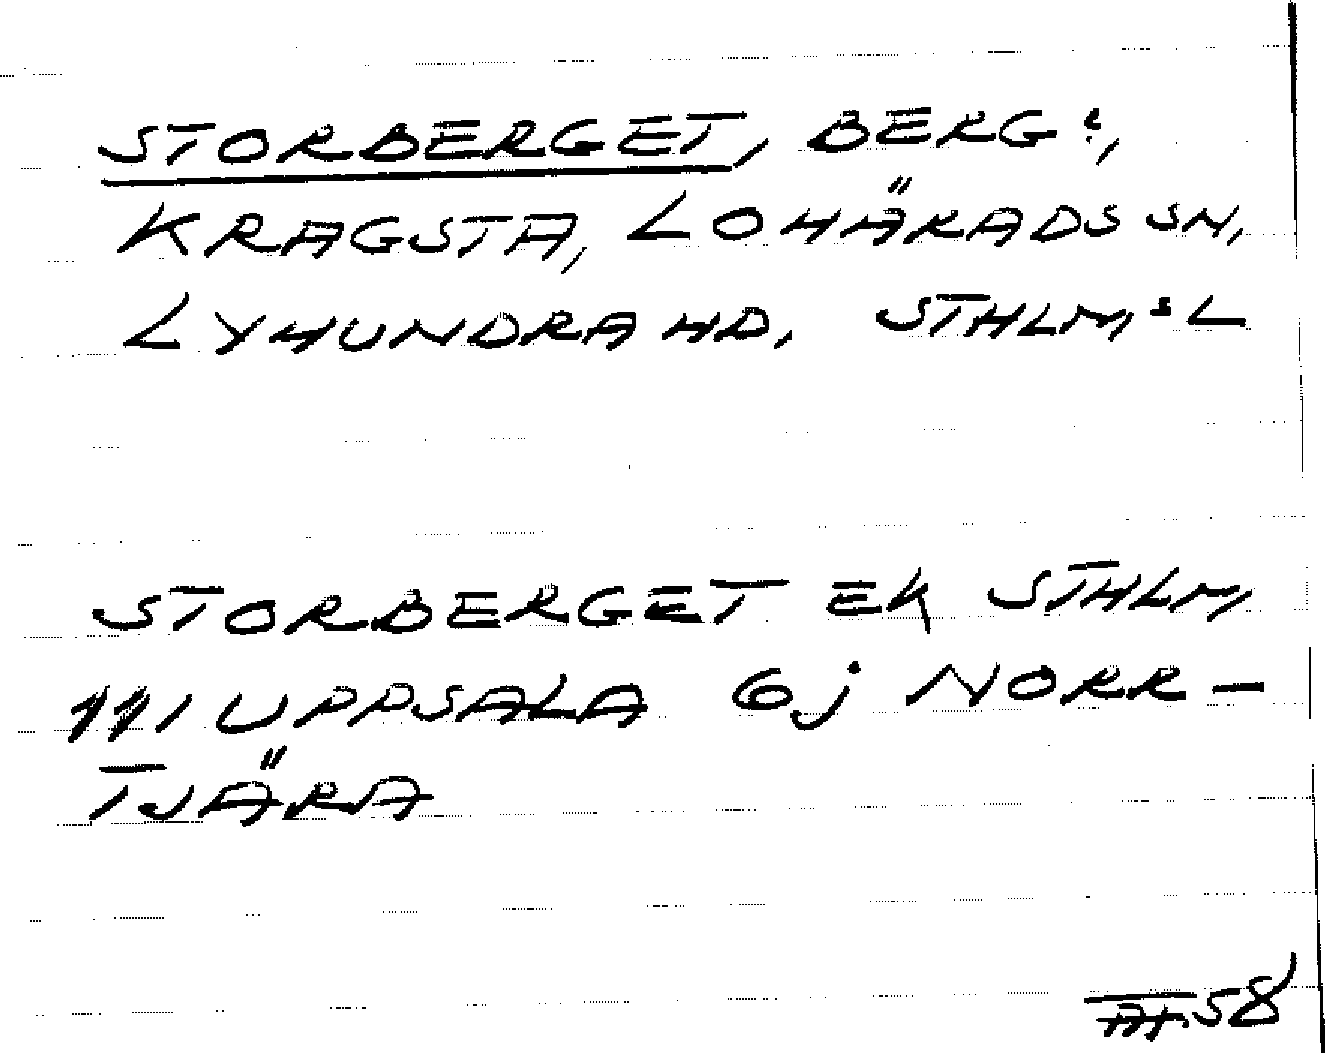 STORBERGET, BERG:,
KRAGSTA, LOHÄRADS SN,
LYHUNDRA HD, STHLM:S L
STORBERGET EK STHLM
111 UPPSALA 6j NORR-
TJÄRA
58